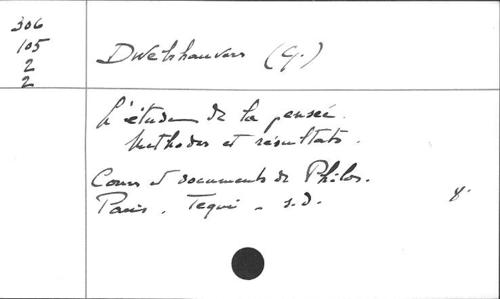 306
105
2
2
Dwelshauvers (G.)
L'étude de la pensée.
Méthodes et résultats.
Cours et documents de Philos.
Paris. Tequi - s.d.
8.